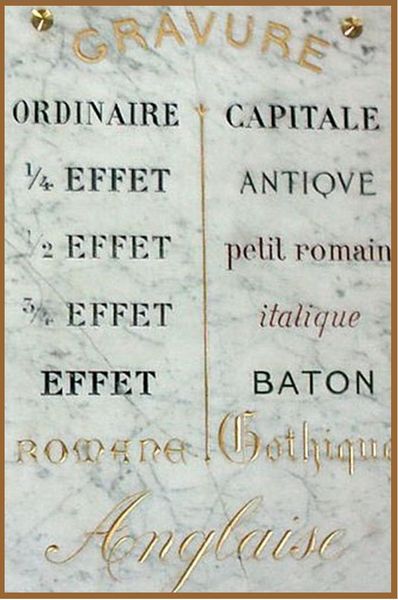 GRAVURE
ORDINAIRE CAPITALE
1/4 EFFET ANTIQVE
1/2 EFFET petit romain
3/4 EFFET italique
EFFET BATON
ROMANE Gothique
Anglaise